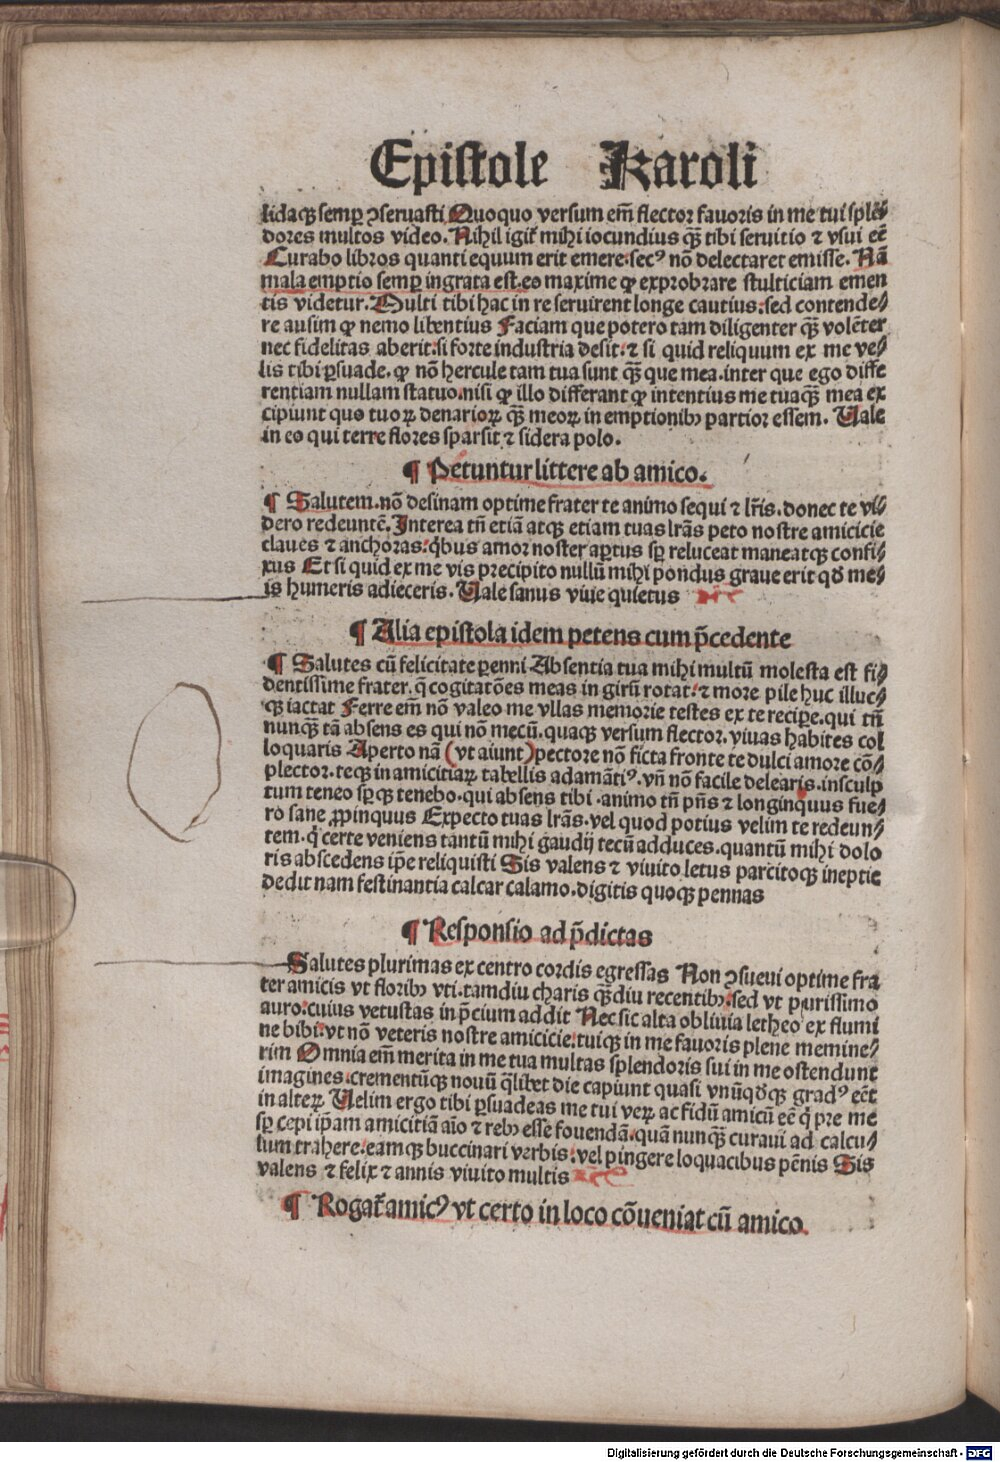 Epistole Karoli
lidaqꝫ semꝑ ꝯseruasti Quoquo versum em̄ flector fauoris in me tui splē⸗
dores multos video. Nihil igit̄ mihi iocundius qꝫ̄ tibi seruitio ⁊ vsui eē
Curabo libros quanti equum erit emere. secꝰ nō delectaret emisse. Nā
mala emptio semꝑ ingrata est. eo maxime ꝙ exprobrare stulticiam emen
tis videtur. Multi tibi hac in re seruirent longe cautius: sed contende⸗
re ausim ꝙ nemo libentius Faciam que potero tam diligenter qꝫ̄ volēter
nec fidelitas aberit: si forte industria desit: ⁊ si quid reliquum ex me ve⸗
lis tibi ꝑsuade. ꝙ nō hercule tam tua sunt qꝫ̄ que mea. inter que ego diffe
rentiam nullam statuo. nisi ꝙ illo differant ꝙ intentius me tuaqꝫ̄ mea ex
cipiunt quo tuoꝝ denarioꝝ qꝫ̄ meoꝝ in emptionibꝫ partior essem. Vale
in eo qui terre flores sparsit ⁊ sidera polo.
¶ Petuntur littere ab amico.
¶ Salutem. nō desinam optime frater te animo sequi ⁊ lr̄is. donec te vi⸗
dero redeuntē. Interea tn̄ etiā atqꝫ etiam tuas lr̄as peto nostre amicicie
claues ⁊ anchoras: qͥbus amor noster aꝑtus sꝑ reluceat maneatqꝫ confi⸗
xus Et si quid ex me vis precipito nullū mihi pondus graue erit qd̄ me⸗
is humeris adieceris. Vale sanus viuie quietus
¶ Alia epistola idem petens cum p̄cedente
¶ Salutes cū felicitate ꝑenni Absentia tua mihi multū molesta est fi⸗
dentissime frater. q̄ cogitatōes meas in girū rotat: ⁊ more pile huc illuc⸗
qꝫ iactat Ferre em̄ nō valeo me vllas memorie testes ex te reciꝑe. qui tn̄
nunqꝫ̄ tā absens es qui nō mecū. quaqꝫ versum flector. viuas habites col
loquaris Aperto nā (vt aiunt) pectore nō ficta fronte te dulci amore cō⸗
plector. teqꝫ in amicitiaꝝ tabellis adamātiꝰ. vn̄ nō facile delearis. insculp
tum teneo sꝑqꝫ tenebo. qui absens tibi. animo tn̄ pn̄s ⁊ longinquus fue⸗
ro sane ꝓpinquus Expecto tuas lr̄as. vel quod potius velim te redeun⸗
tem. qͥ certe veniens tantū mihi gaudij tecū adduces. quantū mihi dolo
ris abscedens ip̄e reliquisti Sis valens ⁊ viuito letus parcitoqꝫ ineptie
dedit nam festinantia calcar calamo. digitis quoqꝫ pennas
¶ Responsio ad p̄dictas
Salutes plurimas ex centro cordis egressas Non ꝯsueui optime fra
ter amicis vt floribꝫ vti. tamdiu charis qꝫ̄diu recentibꝫ: sed vt purissimo
auro: cuius vetustas in p̄cium addit Nec sic alta obliuia letheo ex flumi
ne bibi: vt nō veteris nostre amicicie: tuiqꝫ in me fauoris plene memine⸗
rim Omnia em̄ merita in me tua multas splendoris sui in me ostendunt
imagines. crementūqꝫ nouū qͣlibet die capiunt quasi vnūqd̄qꝫ gradꝰ eēt
in alteꝝ Velim ergo tibi ꝑsuadeas me tui veꝝ ac fidū amicū eē qͥ pre me
sꝑ cepi ip̄am amicitiā aīo ⁊ rebꝫ esse fouendā. quā nunqꝫ̄ curaui ad calcu⸗
lum trahere. eamqꝫ buccinari verbis: vel pingere loquacibus pēnis Sis
valens ⁊ felix ⁊ annis viuito multis
¶ Rogat̄ amicꝰ vt certo in loco cōueniat cū amico.
Digitalisierung gefördert durch die Deutsche Forschungsgemeinschaft - DFG